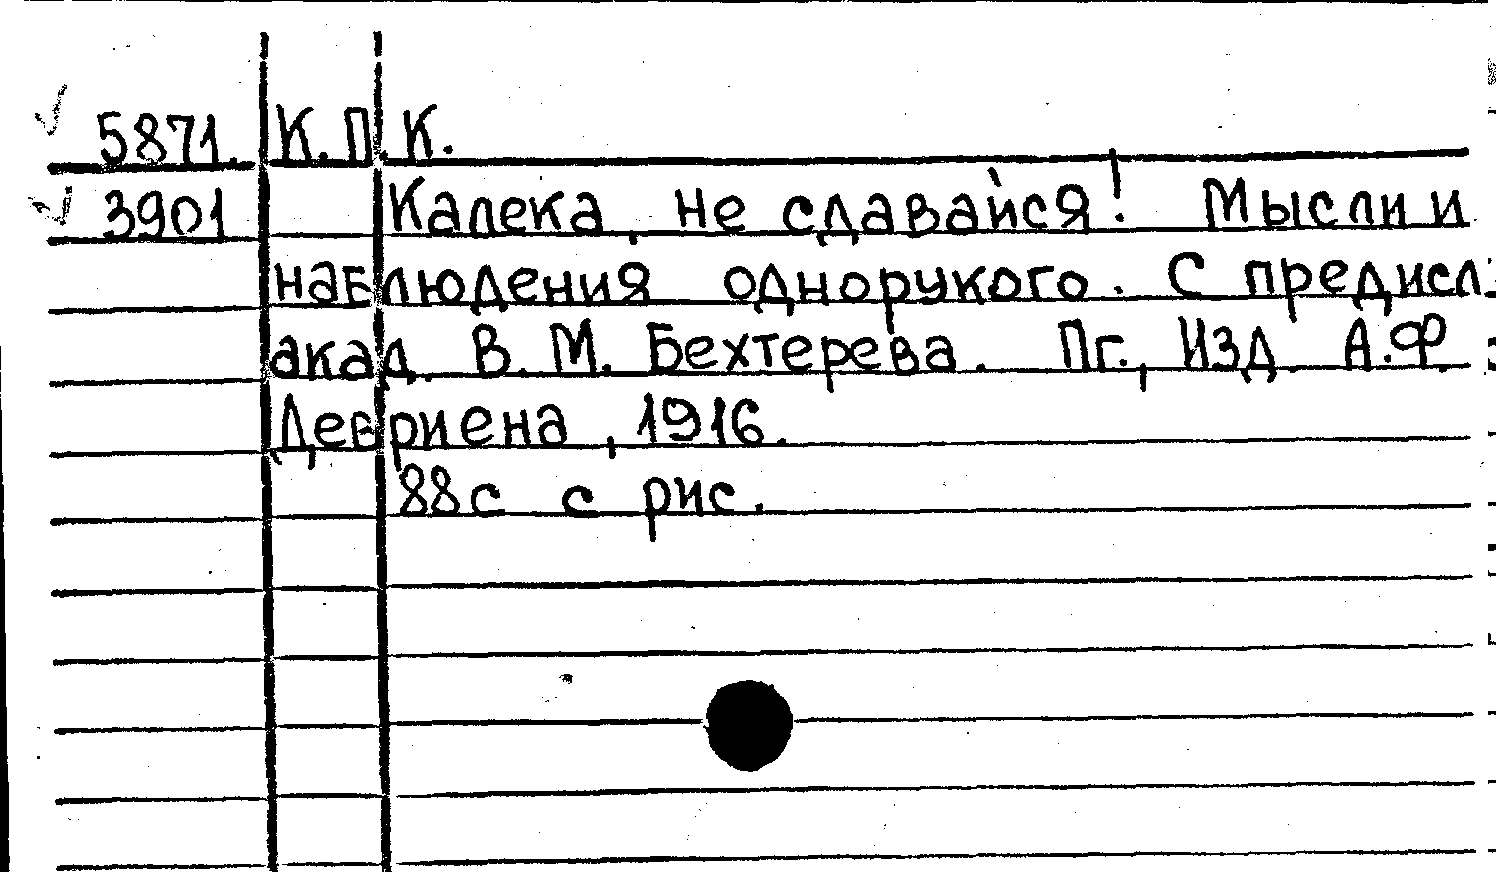 5871. К.П.К.
3901 Калека, не сдавайся! Мысли и
наблюдения однорукого. С предисл.
акад. В. М. Бехтерева. Пг., Изд. А.Ф.
Девриена, 1916.
88с с рис.